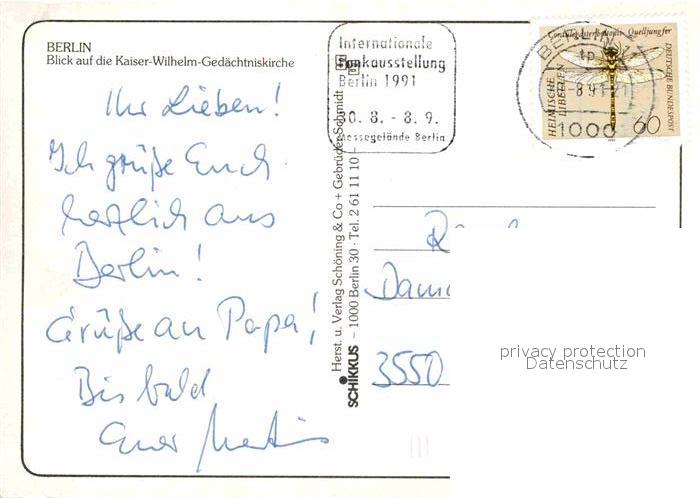 BERLIN
Blick auf die Kaiser-Wilhelm-Gedächtniskirche
Ihr Lieben!
Ich grüße Euch
herzlich aus
Berlin!
Grüße an Papa!
Bis bald
Euer Martin
Internationale
Funkausstellung
Berlin 1991
30. 8. - 8. 9.
Messegelände Berlin
Herst. u. Verlag Schöning & Co + Gebrüder Schmidt
SCHIKKUS – 1000 Berlin 30 · Tel. 2 61 11 10 –
Quelljungfer
HEIMISCHE
LIBELLEN
DEUTSCHE BUNDESPOST
60
BERLIN
1000
3550
privacy protection
Datenschutz